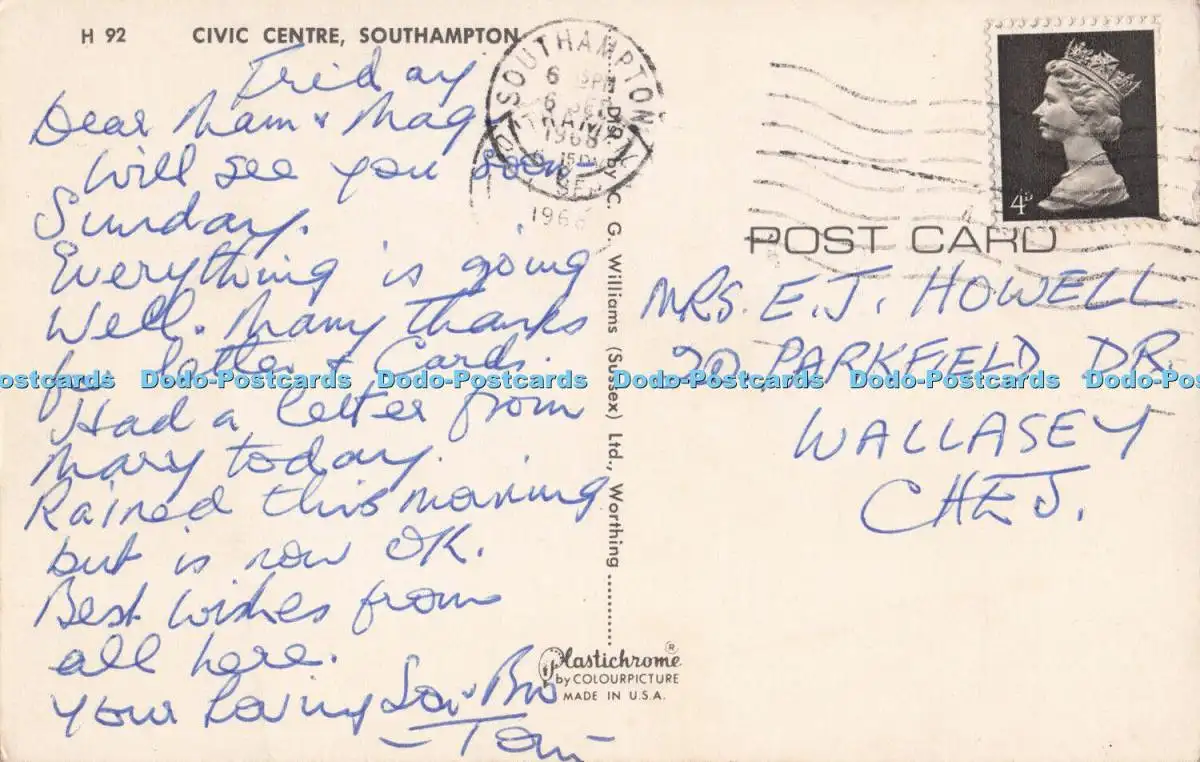 H 92 CIVIC CENTRE, SOUTHAMPTON
Friday
Dear Mam & Mag
Will see you soon -
Sunday.
Everything is going
Well. Many thanks
for letter & Cards.
Had a letter from
Mary today.
Rained this morning
but is now OK.
Best wishes from
all here.
Your Loving Son & Bro
- Tom -
SOUTHAMPTON
6 PM
6 SEP
1968
1968
by C. G. Williams (Sussex) Ltd., Worthing
Plastichrome ®
by COLOURPICTURE
MADE IN U.S.A.
4D
POST CARD
MRS. E. J. HOWELL
20, PARKFIELD DR.
WALLASEY
CHES.
Dodo-Postcards Dodo-Postcards Dodo-Postcards Dodo-Postcards Dodo-Postcards Dodo-Postcards